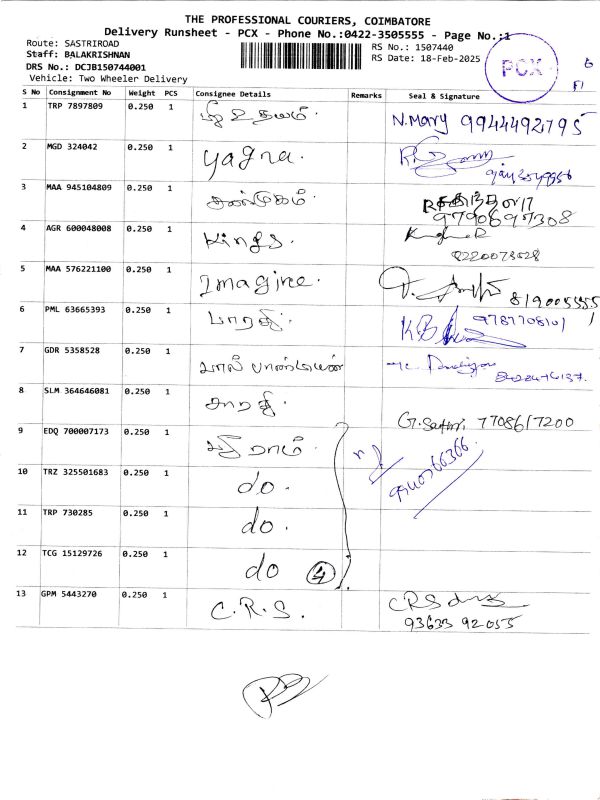 THE PROFESSIONAL COURIERS, COIMBATORE
Delivery Runsheet - PCX - Phone No.:0422-3505555 - Page No.:1
Route: SASTRIROAD
Staff: BALAKRISHNAN
DRS No.: DCJB150744001
Vehicle: Two Wheeler Delivery
RS No.: 1507440
RS Date: 18-Feb-2025
PCX
S No Consignment No Weight PCS Consignee Details Remarks Seal & Signature
1 TRP 7897809 0.250 1 உதயம். N.Mary 9944492795
2 MGD 324042 0.250 1 yagna.
3 MAA 945104809 0.250 1 சண்முகம். 9790697308
4 AGR 600048008 0.250 1 Kings. 8220073528
5 MAA 576221100 0.250 1 Imagine. 819005555
6 PML 63665393 0.250 1 பாரதி. 9787708101
7 GDR 5358528 0.250 1 பால் பாண்டியன்
8 SLM 364646081 0.250 1 சாரதி. 7708617200
9 EDQ 700007173 0.250 1 ஸ்ரீ ராம்.
10 TRZ 325501683 0.250 1 do.
11 TRP 730285 0.250 1 do.
12 TCG 15129726 0.250 1 do 4
13 GPM 5443270 0.250 1 C.R.S. CRS
93633 92055